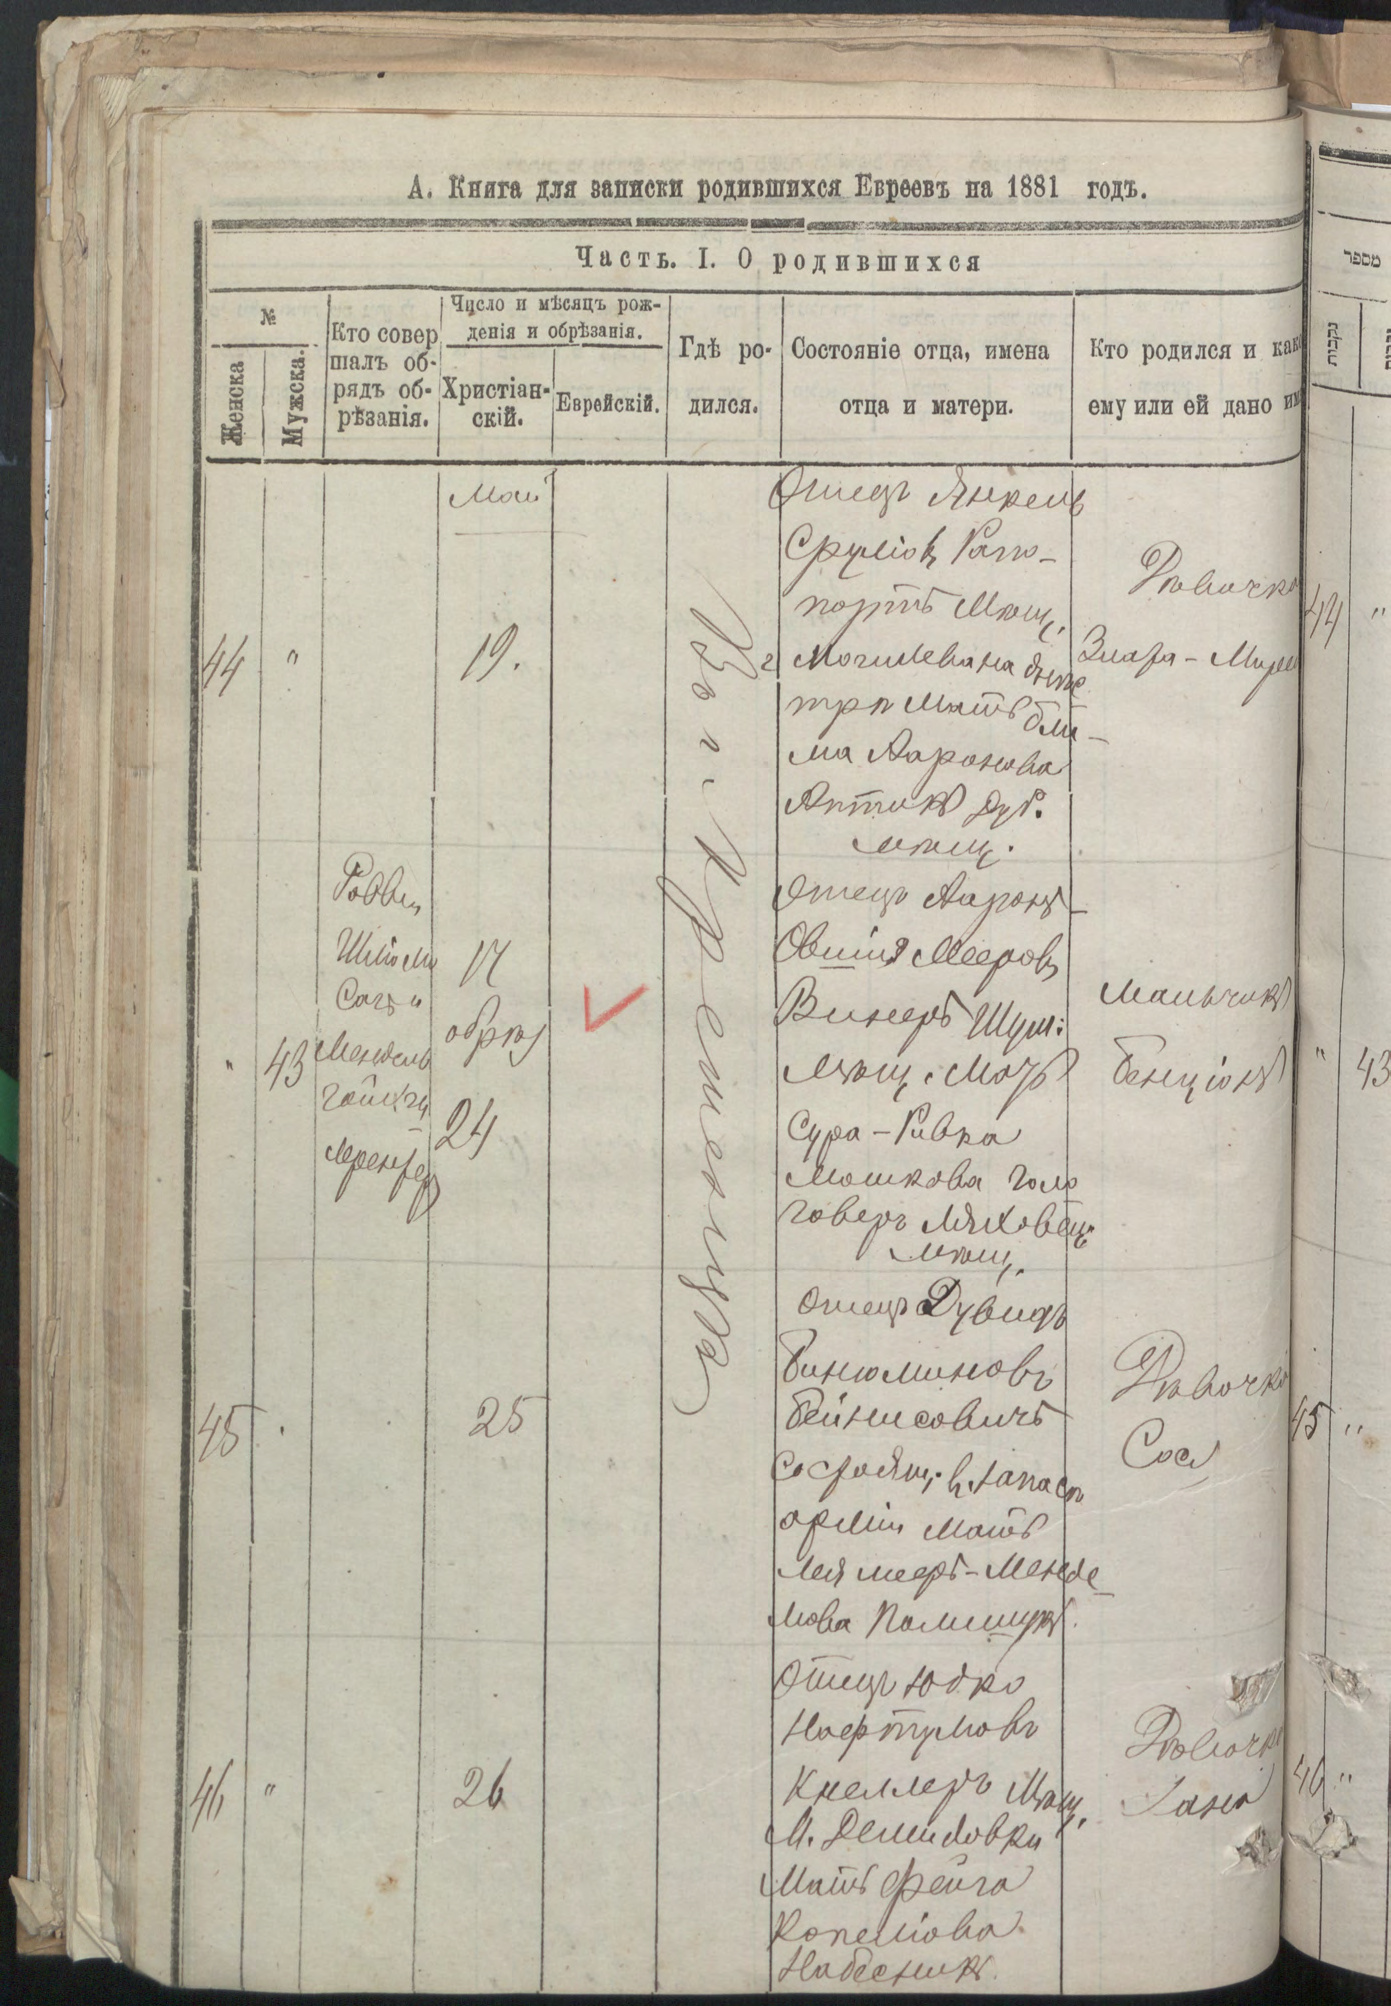 А. Книга для записки родившихся Евреевъ на 1881 годъ.
Часть. I. О родившихся
№
Женска
Мужска.
Кто совер
шалъ об-
рядъ об-
рѣзанія.
Число и мѣсяцъ рож-
денія и обрѣзанія.
Христіан-
скій.
Еврейскій.
Гдѣ ро-
дился.
Состояніе отца, имена
отца и матери.
Кто родился и како
ему или ей дано им
מספר
נקבות
Въ г. Кременцѣ
44
"
Май
19.
Отецъ Янкель
Сруліовъ Рапо-
портъ Мѣщ.
г Могилева на Днѣс
трѣ Мать Блю-
ма Ааронова
Аптикъ Дуб.
мѣщ.
Дѣвочка
Злара - Мирел
44
"
"
43
Равви
Шліома
Мендель
17
обрѣз
24
Отецъ Ааронъ-
Овшія Мееровъ
Винеръ Шум:
Мѣщ. Мать
Сура - Ривка
Мошкова Голо
говеръ Ляховец:
Мѣщ.
Мальчикъ
Бенціонъ
"
43
45
"
25
Отецъ Дувидъ
Бинюминовъ
Бейнисовичъ
Состоящ. въ запасѣ
арміи Мать
Лея Меер-Менде-
лова Полищукъ.
Дѣвочка
Сося
45
"
46
"
26
Отецъ Юдко
Нафтуловъ
Кнеллеръ Мѣщ.
М. Демидовки
Мать Фейга
Копеліова
Набесникъ.
Дѣвочка
Хана
46
"